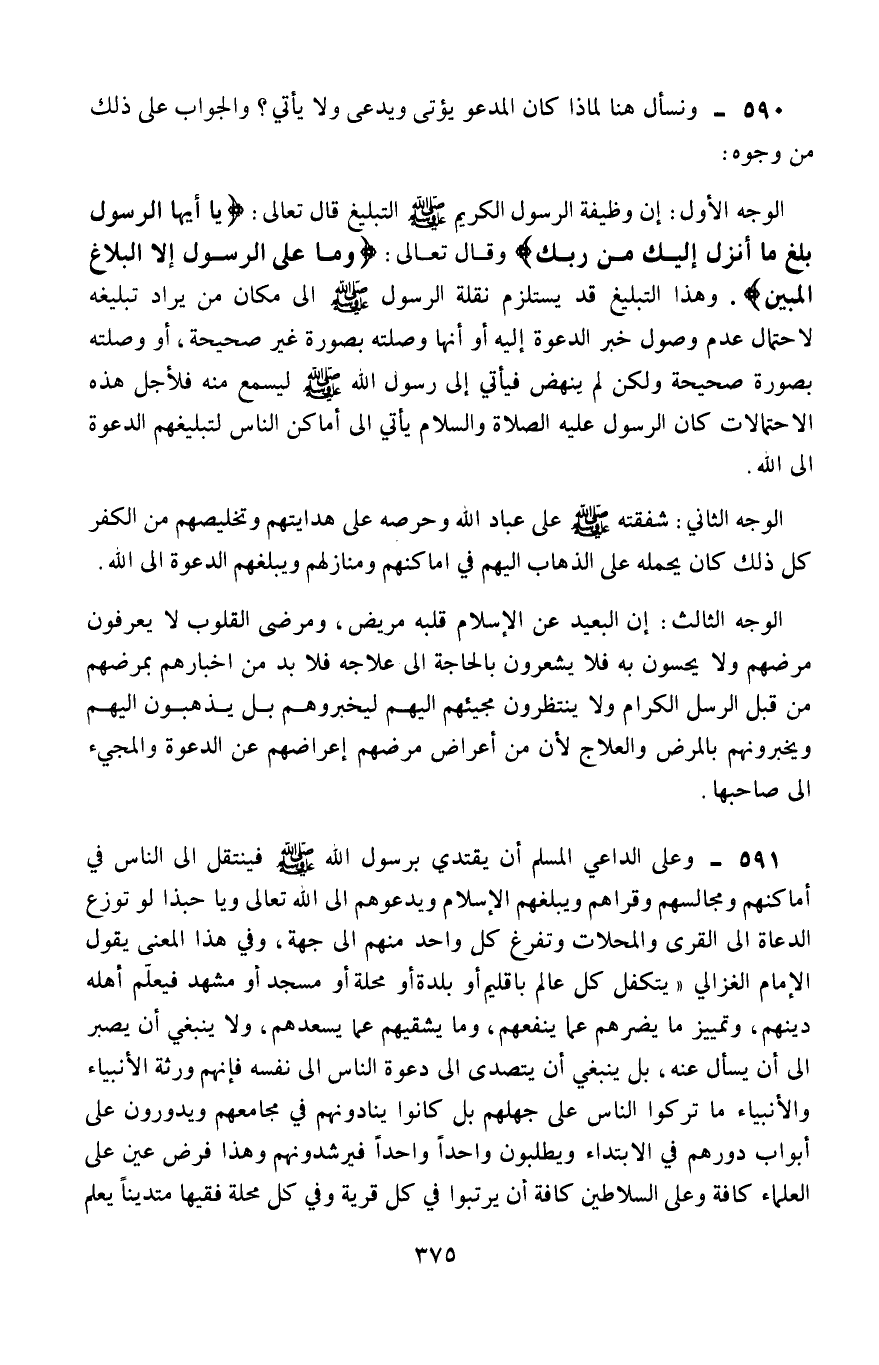 ٥٩٠ ـ ونسأل هنا لماذا كان المدعو يؤتى ويدعى ولا يأتي؟ والجواب على ذلك
من وجوه:
الوجه الأول: إن وظيفة الرسول الكريم ﷺ التبليغ قال تعالى: ﴿يا أيها الرسول
بلغ ما أنزل إليـك مـن ربـك﴾ وقـال تعـالى: ﴿ومـا على الرسـول إلا البلاغ
المبين﴾. وهذا التبليغ قد يستلزم نقلة الرسول ﷺ الى مكان من يراد تبليغه
لاحتمال عدم وصول خبر الدعوة إليه أو أنها وصلته بصورة غير صحيحة، أو وصلته
بصورة صحيحة ولكن لم ينهض فيأتي إلى رسول الله ﷺ ليسمع منه فلأجل هذه
الاحتمالات كان الرسول عليه الصلاة والسلام يأتي الى أماكن الناس لتبليغهم الدعوة
الى الله.
الوجه الثاني: شفقته ﷺ على عباد الله وحرصه على هدايتهم وتخليصهم من الكفر
كل ذلك كان يحمله على الذهاب اليهم في اماكنهم ومنازلهم ويبلغهم الدعوة الى الله.
الوجه الثالث: إن البعيد عن الإسلام قلبه مريض، ومرضى القلوب لا يعرفون
مرضهم ولا يحسون به فلا يشعرون بالحاجة الى علاجه فلا بد من اخبارهم بمرضهم
من قبل الرسل الكرام ولا ينتظرون مجيئهم اليهـم ليخبروهـم بـل يـذهبـون اليهـم
ويخبرونهم بالمرض والعلاج لأن من أعراض مرضهم إعراضهم عن الدعوة والمجيء
الى صاحبها.
٥٩١ ـ وعلى الداعي المسلم أن يقتدي برسول الله ﷺ فينتقل الى الناس في
أماكنهم ومجالسهم وقراهم ويبلغهم الإسلام ويدعوهم الى الله تعالى ويا حبذا لو توزع
الدعاة الى القرى والمحلات وتفرغ كل واحد منهم الى جهة، وفي هذا المعنى يقول
الإمام الغزالي « يتكفل كل عالم باقليم أو بلدة أو محلة أو مسجد أو مشهد فيعلّم أهله
دينهم، وتمييز ما يضرهم عما ينفعهم، وما يشقيهم عما يسعدهم، ولا ينبغي أن يصبر
الى أن يسأل عنه، بل ينبغي أن يتصدى الى دعوة الناس الى نفسه فإنهم ورثة الأنبياء
والأنبياء ما تركوا الناس على جهلهم بل كانوا ينادونهم في مجامعهم ويدورون على
أبواب دورهم في الابتداء ويطلبون واحداً واحداً فيرشدونهم وهذا فرض عين على
العلماء كافة وعلى السلاطين كافة أن يرتبوا في كل قرية وفي كل محلة فقيها متديناً يعلم
٣٧٥